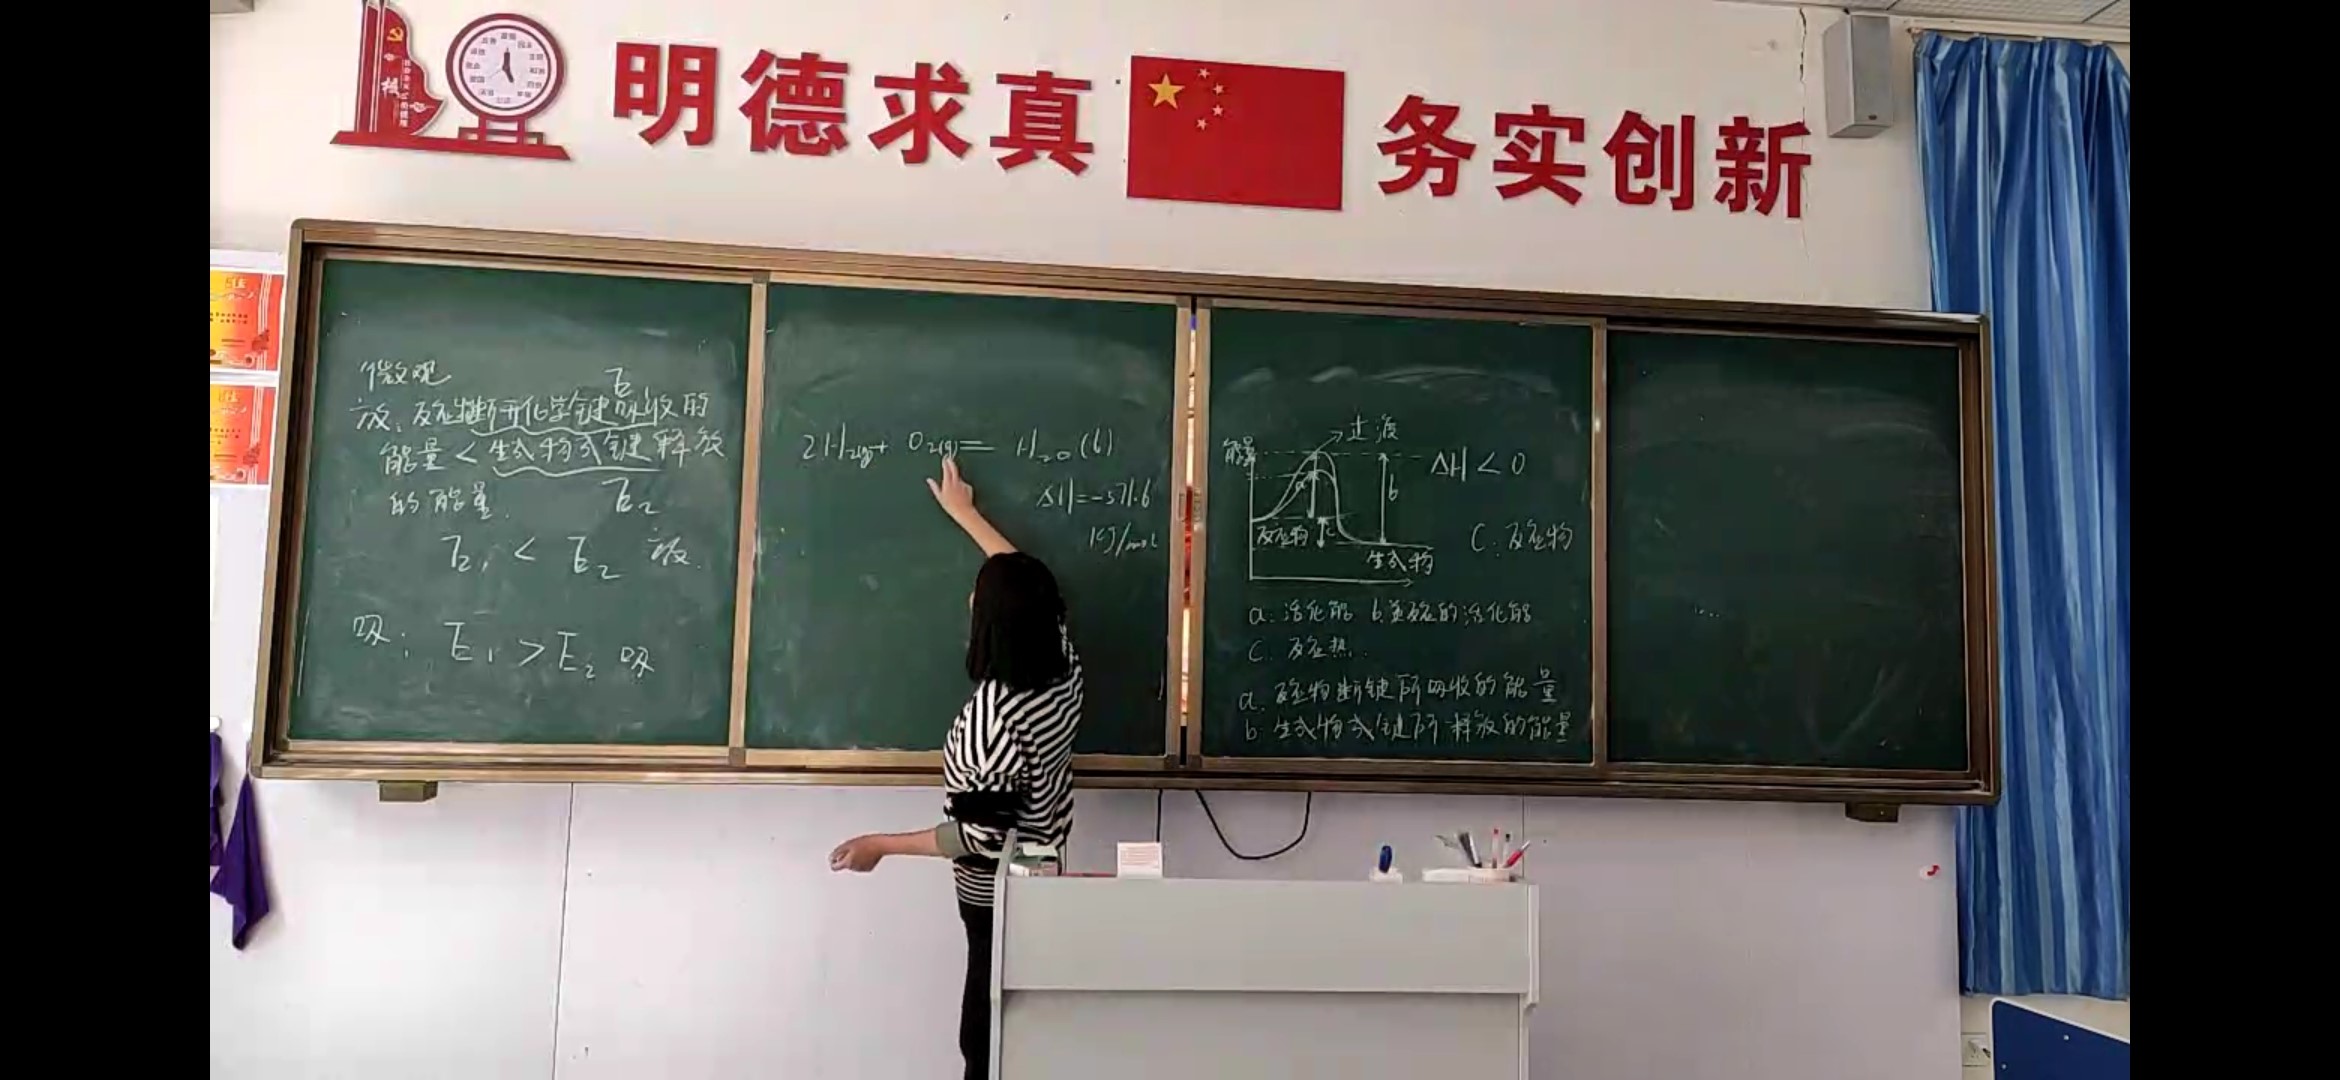 明德求真 务实创新
微观
放：反应物断开化学键吸收的
E₁
能量＜生成物成键释放
的能量.
E₂
E₁ < E₂ 放.
吸： E₁ > E₂ 吸
2H₂(g)+ O₂(g)= H₂O(l)
ΔH=-571.6
kJ/mol
能量
过渡
ΔH < 0
a
b
反应物
c
生成物
C: 反应物
a: 活化能 b.逆反应的活化能
C. 反应热.
a. 反应物断键所吸收的能量
b. 生成物成键所释放的能量